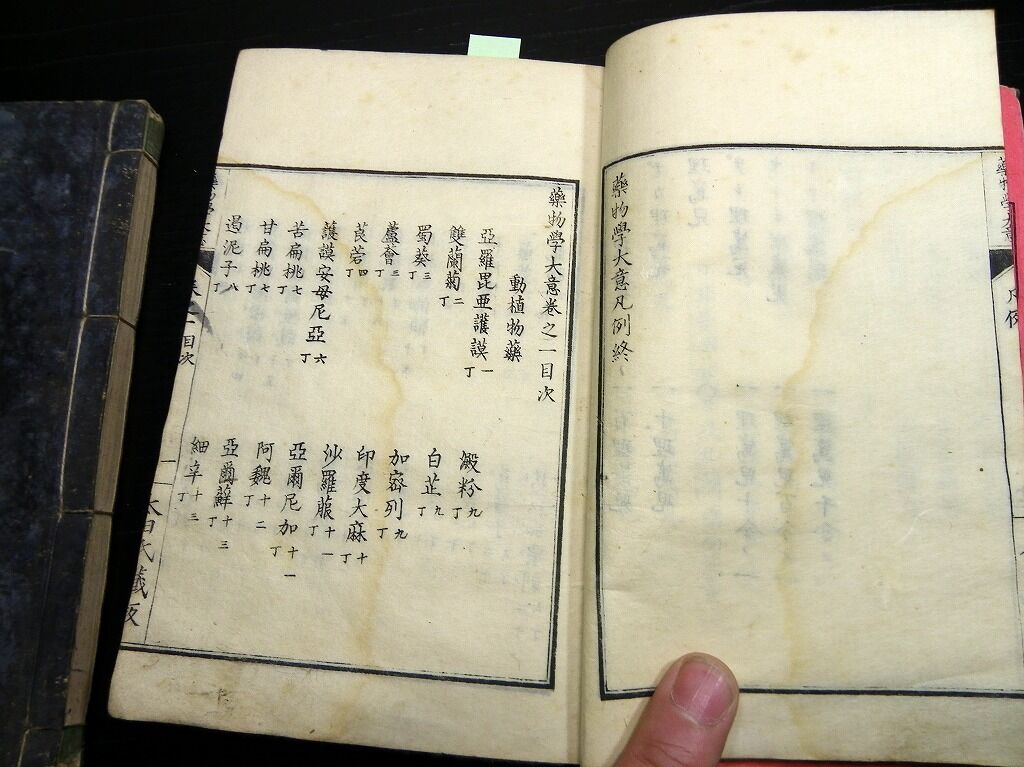 藥物學大意
凡例
藥物學大意凡例終
藥物學大意卷之一目次
動植物藥
亞羅毘亜護謨 一丁
雙蘭菊 二丁
蜀葵 三丁
蘆薈 三丁
莨菪 四丁
護謨安母尼亞 六丁
苦扁桃 七丁
甘扁桃 七丁
遏泥子 八丁
澱粉 九丁
白芷 九丁
加密列 九丁
印度大麻 十丁
沙羅菔 十一丁
亞爾尼加 十一丁
阿魏 十二丁
亞爵蘚 十三丁
細辛 十三丁
卷之一目次
一
氏藏板